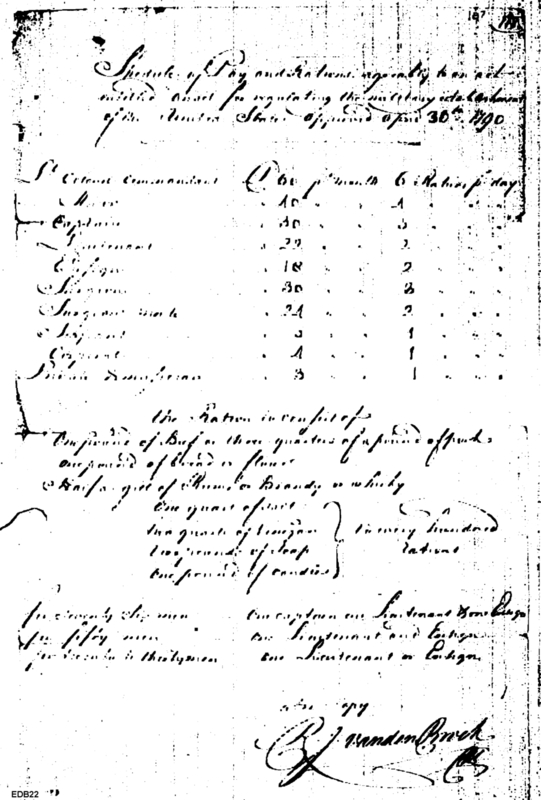 167
Schedule of Pay and Rations agreably to an act
entitled an act for regulating the military establishment
of the United States approved April 30th 1790
Lt Colonel Commandant 60 pr month 6 Rations pr day
Major 40 4
Captain 30 3
Lieutenant 22 2
Ensign 18 2
Surgeon 30 3
Surgeons mate 24 2
Serjeant 1
Corporal 4 1
Private & musician 3 1
the Ration to consist of
One pound of Beef or three quarters of a pound of pork
one pound of bread or flower
Half a gill of Rum or Brandy or whisky
One quart of salt
two quarts of Vinegar to every hundred
two pounds of Soap rations
One pound of candles
for seventy Six men One captain one Lieutenant & one Ensign
for fifty men One Lieutenant and Ensign
for to thirty men One Lieutenant or Ensign
copy
B J VandenBroek
EDB22